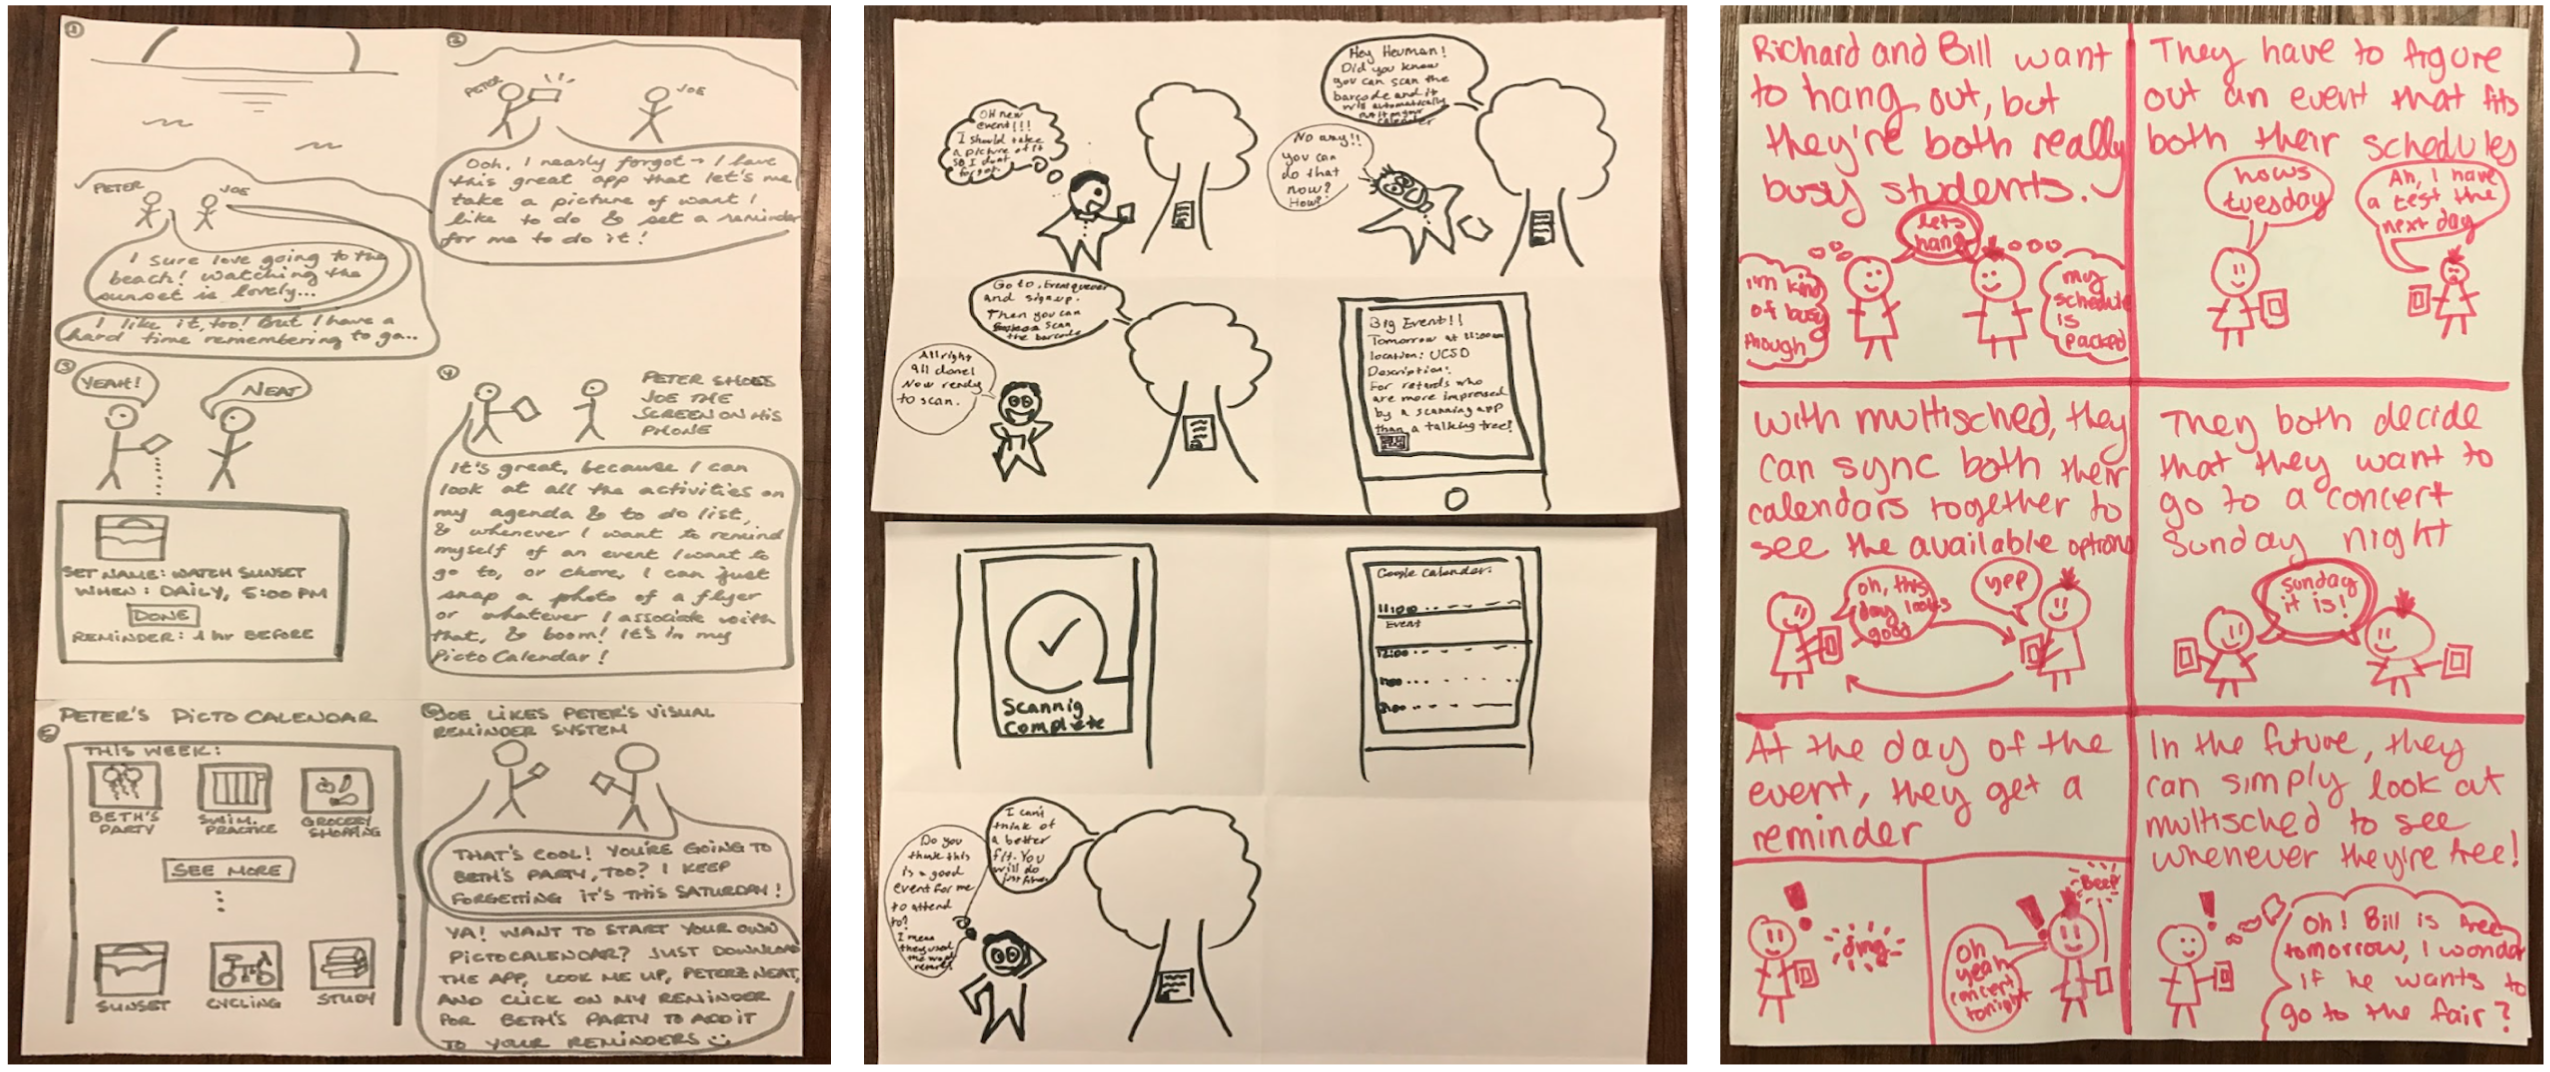 1
PETER
JOE
I sure love going to the
beach! watching the
sunset is lovely...
I like it, too! But I have a
hard time remembering to go..
2
PETER
JOE
Ooh, I nearly forgot - I have
this great app that let's me
take a picture of want I
like to do & set a reminder
for me to do it!
3
YEAH!
NEAT
SET NAME: WATCH SUNSET
WHEN: DAILY, 5:00 PM
DONE
REMINDER: 1 hr BEFORE
4
PETER SHOES
JOE THE
SCREEN ON HIS
PHONE
It's great, because I can
look at all the activities on
my agenda & to do list,
& whenever I want to remind
myself of an event I want to
go to, or chore, I can just
snap a photo of a flyer
or whatever I associate with
that, & boom! It's in my
Picto Calendar!
PETER'S PICTO CALENDAR
5
THIS WEEK:
BETH'S
PARTY
SWIM.
PRACTICE
GROCERY
SHOPPING
SEE MORE
SUNSET
CYCLING
STUDY
6
JOE LIKES PETER'S VISUAL
REMINDER SYSTEM
THAT'S COOL! YOU'RE GOING TO
BETH'S PARTY, TOO? I KEEP
FORGETTING IT'S THIS SATURDAY!
YA! WANT TO START YOUR OWN
PICTOCALENDAR? JUST DOWNLOAD
THE APP, LOOK ME UP, PETERZNEAT,
AND CLICK ON MY REMINDER
FOR BETH'S PARTY TO ADD IT
TO YOUR REMINDERS
OH new
event!!!
I should take
a picture of it
so I dont
forget.
Hey Heuman!
Did you know
you can scan the
barcode and it
automatically
put it on your
calender
No way!!
you can
do that
now?
How?
Go to
and signup.
Then you can
scan
the barcode
All right
all done!
Now ready
to scan.
Big Event!!
Tomorrow at 11:00am
location: UCSD
Description:
For retards who
are more impressed
by a scanning app
than a talking tree!
Scannig
Complete
Google Calendar:
11:00
Event
12:00
Do you
think this
is a good
event for me
to attend
to?
I mean
they used
the word
retard
I can't
think of
a better
fit. You
will do
just fine
Richard and Bill want
to hang out, but
they're both really
busy students.
lets
hang
I'm kind
of busy
though
my
schedule
is
packed
They have to figure
out an event that fits
both their schedules
hows
tuesday
Ah, I have
a test the
next day
with multisched, they
can sync both their
calendars together to
see the available options
oh, this
day looks
good
yep
They both decide
that they want to
go to a concert
Sunday night
sunday
it is!
At the day of the
event, they get a
reminder
ding
Beep
Oh
yeah
concert
tonight
In the future, they
can simply look at
multisched to see
whenever they're free!
Oh! Bill is free
tomorrow, I wonder
if he wants to
go to the fair?